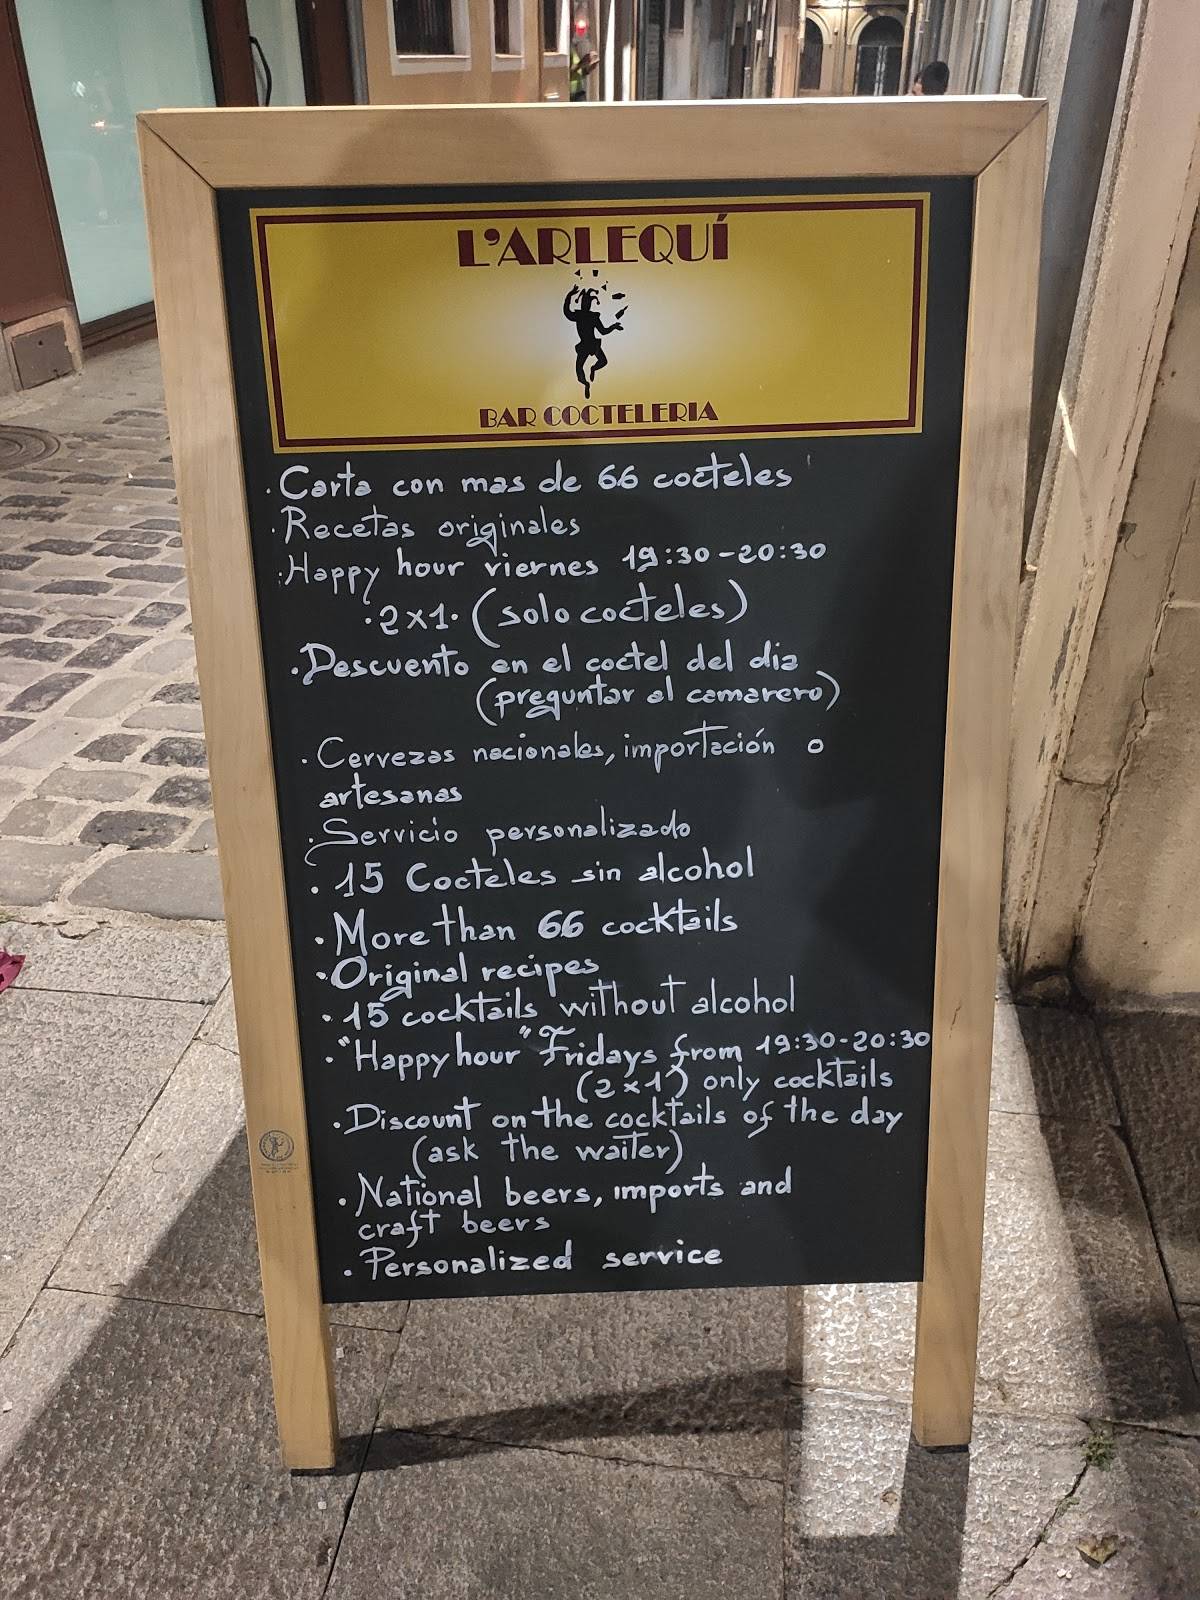 L'ARLEQUÍ
BAR COCTELERIA
· Carta con mas de 66 cocteles
· Recetas originales
· Happy hour viernes 19:30-20:30
· 2x1· (solo cocteles)
· Descuento en el coctel del dia
(preguntar al camarero)
· Cervezas nacionales, importación o
artesanas
· Servicio personalizado
· 15 Cocteles sin alcohol
· More than 66 cocktails
· Original recipes
· 15 cocktails without alcohol
· "Happy hour" Fridays from 19:30-20:30
(2x1) only cocktails
· Discount on the cocktails of the day
(ask the waiter)
· National beers, imports and
craft beers
· Personalized service